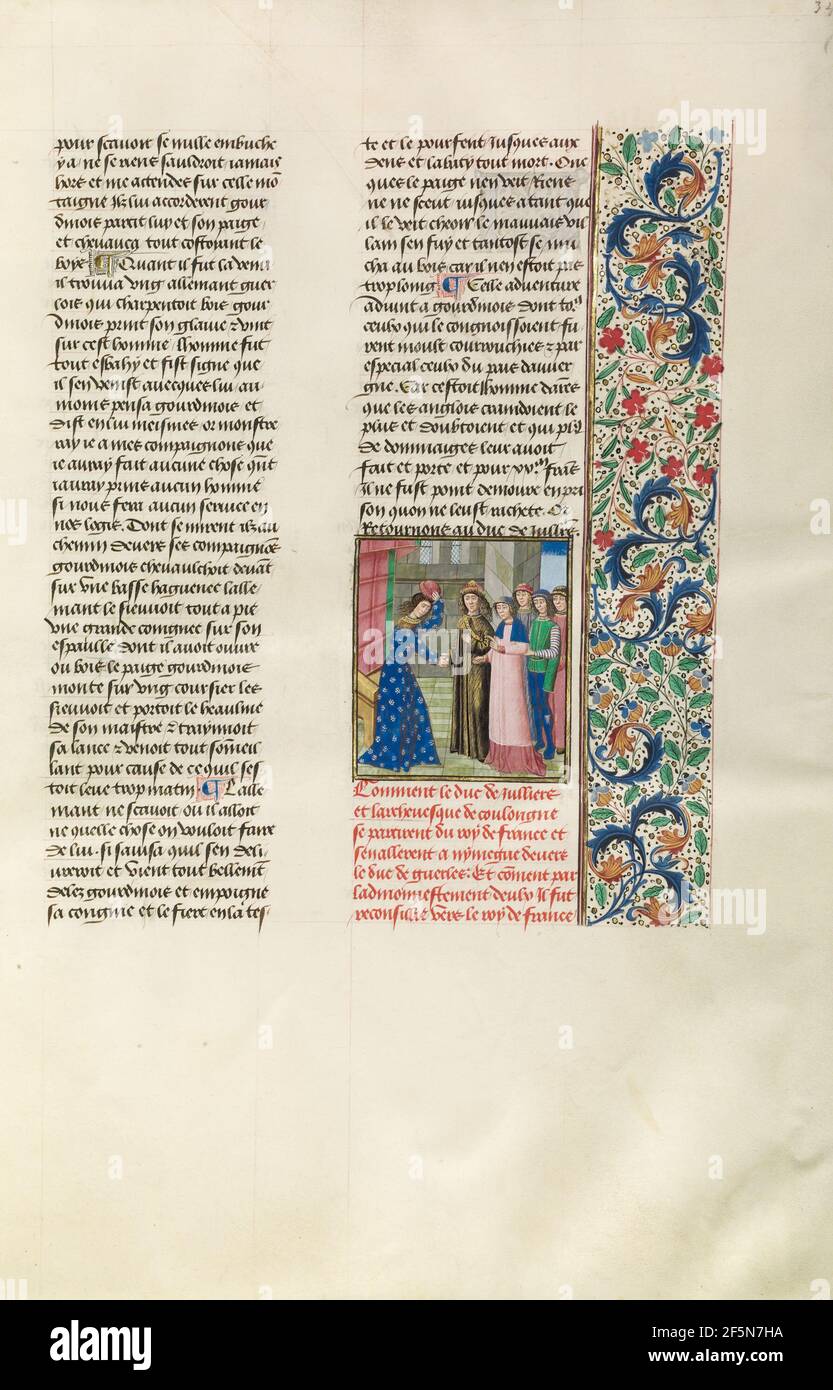 pour scavoir se nulle embuche
y a / ne se riens sauldroit iamais
hors et me actendes sur celle mō
taigne Ilz lui accorderent gour
dinois partit luy et son paige
et chevauca tout costoiant le
boys ¶ Quant il fut la venu
il trouva vng allemant guer
lois qui charpentoit bois gour
dinois print son glaive & vint
sur cest homme / lhomme fut
tout esbahy et fist signe que
il sen venist avecques lui au
moins pensa gourdinois et
dist en lui meismes or monstre
ray ie a mes compaignons que
ie auray fait aucune chose qnt
iauray prins aucun homme
si nous fera aucun service en
nos logis. Dont se mirent ilz au
chemin devers ses compaignōs
gourdinois chevaulchoit devāt
sur vne basse haguenee lalle
mant le sieuvoit tout a pie
vne grande congnee sur son
espaulle dont il avoit ouvre
ou bois le paige gourdinois
monte sur vng coursier les
sieuvoit et portoit le heaulme
de son maistre & traynoit
sa lance & venoit tout sōmeil
lant pour cause de ce quil ses
toit leve trop matin. ¶ Lalle
mant ne scavoit ou il alloit
ne quelle chose on vouloit faire
de lui. si savisa quil sen deli
vreroit et vient tout bellemēt
delez gourdinois et empoigne
sa congnie et le fiert en la tes
te et le pourfent Jusques aux
dens et labaty tout mort. Onc
ques le paige nen veit Riens
ne ne sceut iusques a tant que
il le veit cheoir le mauvais vil
lain sen fuy et tantost se mu
cha au bois car il nen estoit pas
trop loing ¶ Celle adventure
advint a gourdinois dont to⁹
ceulx qui le congnoissoient fu
rent moult courrouchies & par
especial ceulx du pais dauver
gne. Car cestoit lhomme darmes
que les anglois craindoient le
plus et doubtoient et qui pl⁹
de dommaiges leur avoit
fait et porte et pour xvᵐ frās
Il ne fust point demoure en pri
son quon ne leust rachete. Or
Retournons au duc de Jullers.
Comment le duc de iulliers
et larchevesque de coulongne
se partirent du roy de france et
sen allerent a nymegue devers
le duc de guerles: Et cōment par
ladmonnestement deulx Il fut
reconsillie vers le roy de france
alamy
Image ID: 2F5N7HA
www.alamy.com